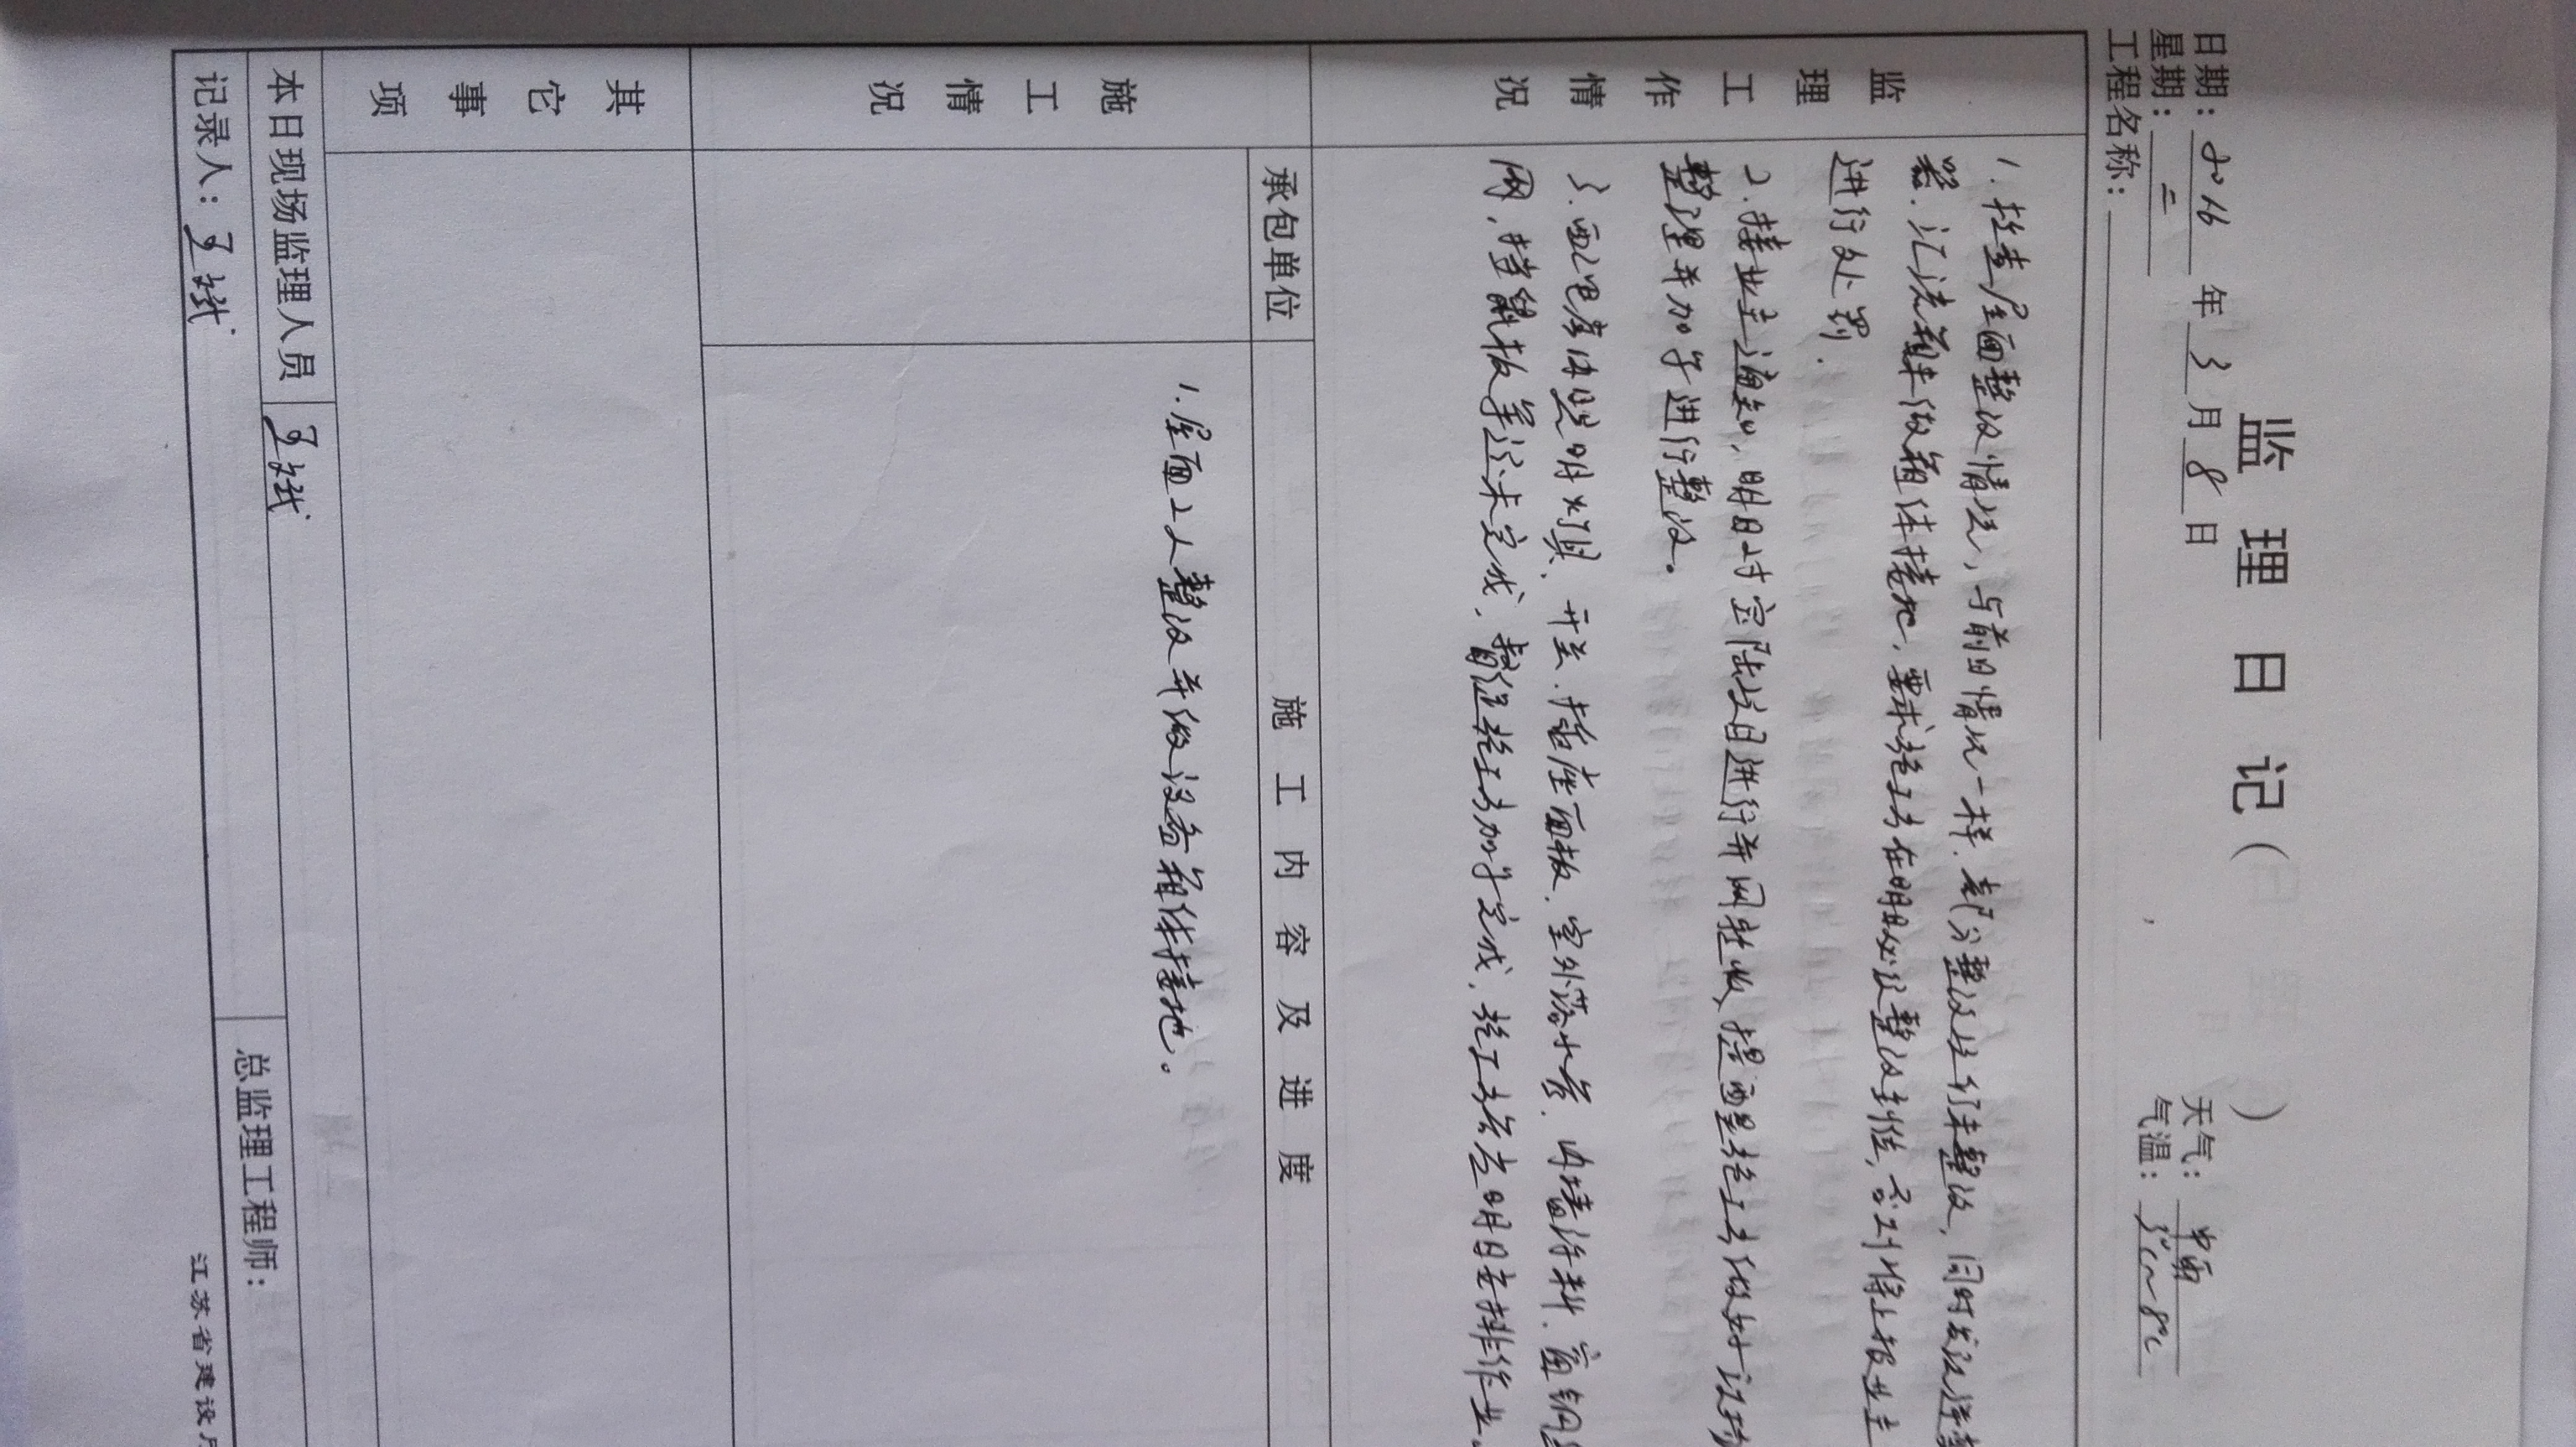 监理日记( )
日期: 2016 年 3 月 8 日
天气: 中雨
星期: 二
气温: 3℃~8℃
工程名称:
监理工作情况
1. 检查屋面整改情况, 与前日情况一样, 部分整改 未整改, 同时发现逆变
器、汇流箱未做箱体接地, 要求施工方在明日必须整改到位, 否则将上报业主
进行处罚.
2. 接业主通知, 明日对 项目进行并网验收, 提醒施工方做好 现场
整理并加予进行整改。
3. 配电房内照明灯具、开关、插座面板、室外落水管、内墙涂料、窗
网、挡鼠板等还未完成, 督促施工方加予完成, 施工方答应明日安排作业。
施工情况
承包单位
施工内容及进度
1. 屋面2人整改并做设备箱体接地。
其它事项
本日现场监理人员
总监理工程师:
记录人:
江苏省建设